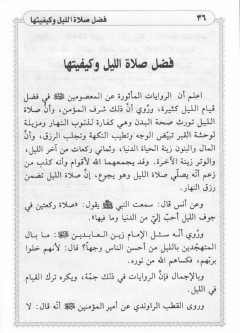 ٣٦ فضل صلاة الليل وكيفيتها
فضل صلاة الليل وكيفيتها
اعلم أن الروايات المأثورة عن المعصومين في فضل
قيام الليل كثيرة، وروي أنّ ذلك شرف المؤمن، وأنّ صلاة
الليل تورث صحة البدن وهي كفارة لذنوب النهار ومزيلة
لوحشة القبر تبيّض الوجه وتطيب النكهة وتجلب الرزق، وأنّ
المال والبنون زينة الحياة الدنيا، وثماني ركعات من آخر الليل،
والوتر زينة الآخرة. وقد يجمعهما الله لأقوام وأنه كذب من
زعم أنه يصلّي صلاة الليل وهو يجوع، إنّ صلاة الليل تضمن
رزق النهار.
وعن أنس قال: سمعت النبي يقول: «صلاة ركعتين في
جوف الليل أحبّ إليّ من الدنيا وما فيها».
وروي أنّه سئل الإمام زين العابدين: ما بال
المتهجّدين بالليل من أحسن الناس وجهاً؟ قال: لأنهم خلوا
بربهم، فكساهم الله من نوره.
وبالإجمال فإنّ الروايات في ذلك جمّة، ويكره ترك القيام
في الليل.
وروى القطب الراوندي عن أمير المؤمنين أنّه قال: لا